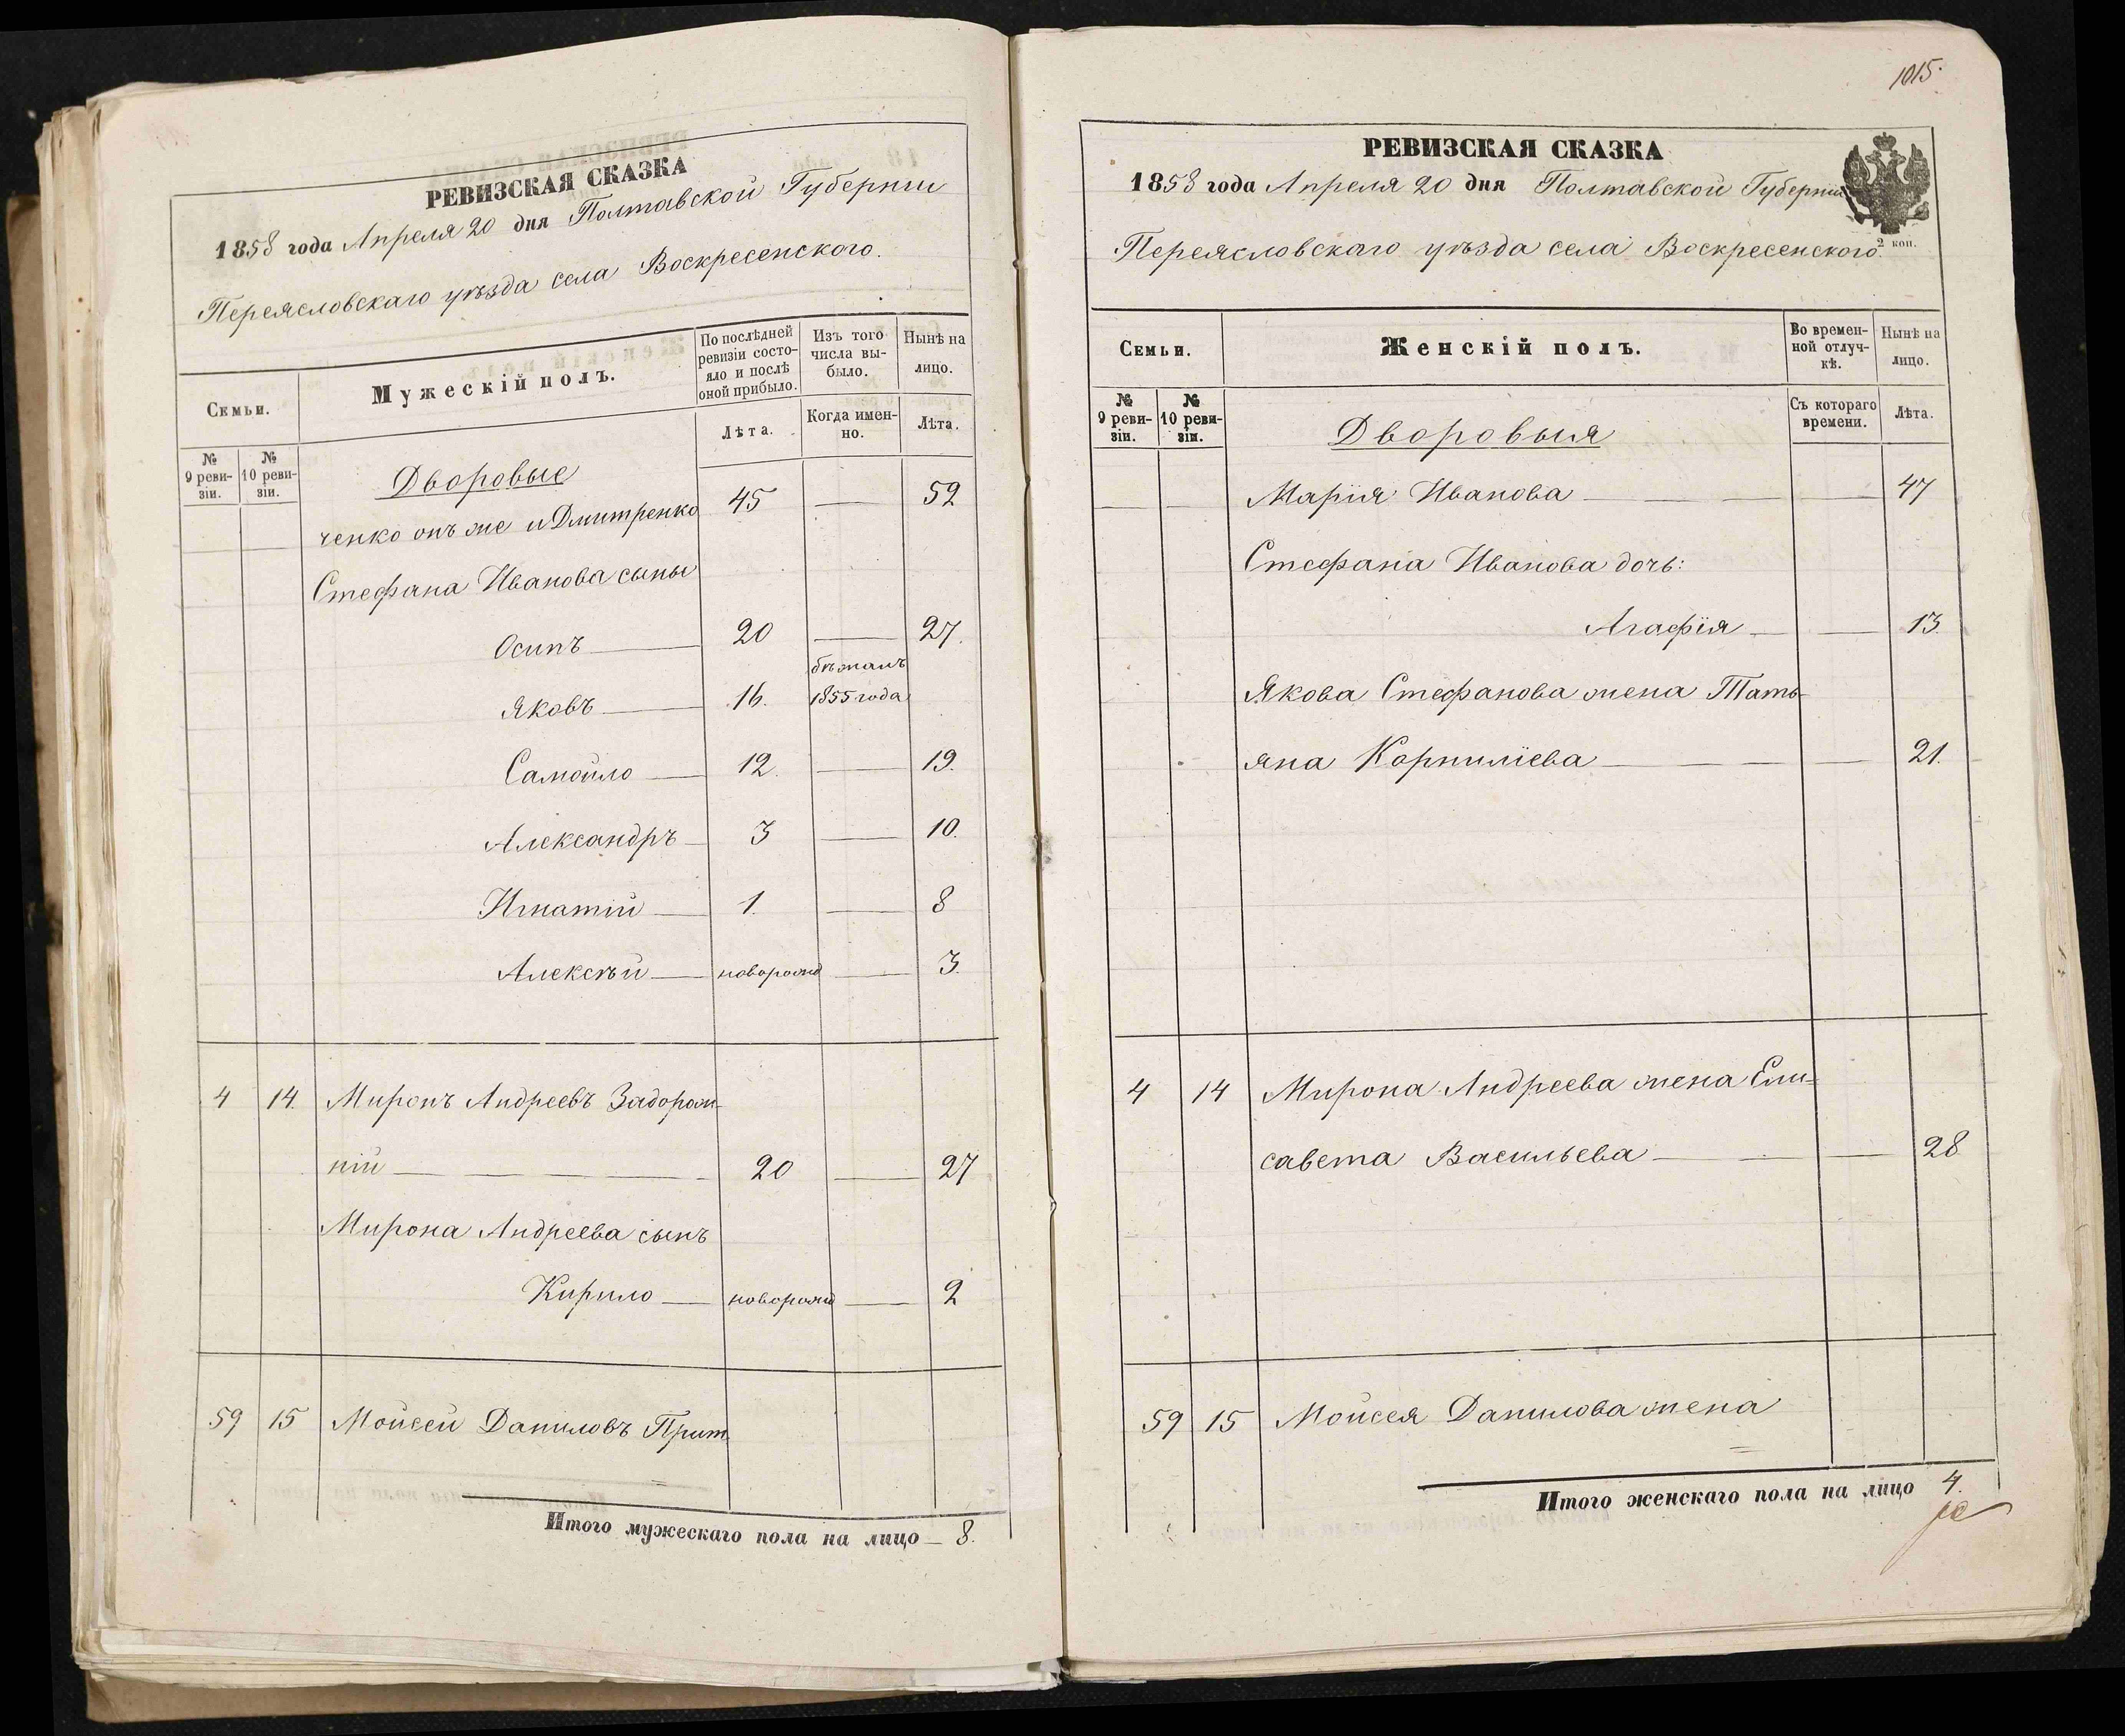 РЕВИЗСКАЯ СКАЗКА
1858 года Апреля 20 дня Полтавской Губернии
Переясловскаго уѣзда села Воскресенского.
Семьи.
Мужескій полъ.
По послѣдней ревизіи состояло и послѣ оной прибыло.
Изъ того числа выбыло.
Нынѣ на лицо.
№ 9 ревизіи.
№ 10 ревизіи.
Лѣта.
Когда именно.
Лѣта.
Дворовые
ченко онъ же и Дмитренко 45 — 52
Стефана Иванова сыны
Осипъ — 20 — 27.
Яковъ — 16. бѣжалъ 1855 года
Самойло — 12. — 19.
Александръ — 3 — 10.
Игнатій — 1. — 8
Алексѣй — новорожд — 3.
4 14. Миронъ Андреевъ Задорож-
ній — 20 — 27
Мирона Андреева сынъ
Кирило — новорожд — 2
59 15 Мойсей Даниловъ Прит
=
Итого мужескаго пола на лицо — 8.
1015.
РЕВИЗСКАЯ СКАЗКА
1858 года Апреля 20 дня Полтавской Губернии
2 коп.
Переясловскаго уѣзда села Воскресенского.
Семьи.
Женскій полъ.
Во временной отлучкѣ.
Нынѣ на лицо.
№ 9 ревизіи.
№ 10 ревизіи.
Съ котораго времени.
Лѣта.
Дворовыя
Марія Иванова — 47
Стефана Иванова дочь:
Агафія — 13.
Якова Стефанова жена Тать-
яна Корнилієва — 21.
4 14 Мирона Андреева жена Ели=
савета Васильева — 28
59 15 Мойсея Данилова жена
=
Итого женскаго пола на лицо 4.